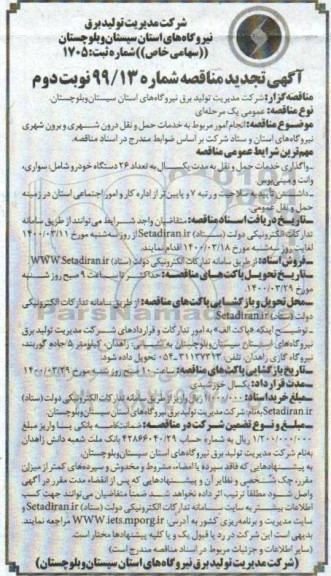 شرکت مدیریت تولید برق
نیروگاه‌های استان سیستان وبلوچستان
((سهامی خاص)) شماره ثبت: ۱۷۰۵
آگهی تجدید مناقصه شماره ۹۹/۱۳ نوبت دوم
مناقصه گزار: شرکت مدیریت تولید برق نیروگاه‌های استان سیستان وبلوچستان.
نوع مناقصه: عمومی یک مرحله‌ای
موضوع مناقصه: انجام امور مربوط به خدمات حمل و نقل درون شهری و برون شهری
نیروگاه‌های استان و ستاد شرکت بر اساس ضوابط مندرج در اسناد مناقصه.
مهم‌ترین شرایط عمومی مناقصه
ـ واگذاری خدمات حمل و نقل به مدت یکسال به تعداد ۲۶ دستگاه خودرو شامل: سواری،
وانت و مینی‌بوس
ـ داشتن گواهینامه صلاحیت و رتبه ۷ و پایین‌تر از اداره کار و امور اجتماعی استان در زمینه
حمل و نقل عمومی
ـ تاریخ دریافت اسناد مناقصه: متقاضیان واجد شرایط می‌توانند از طریق سامانه
تدارکات الکترونیکی دولت (ستاد) Setadiran.ir از روز سه‌شنبه مورخ ۱۴۰۰/۰۳/۱۱
لغایت روز سه‌شنبه مورخ ۱۴۰۰/۰۳/۱۸ اقدام نمایند.
ـ فروش اسناد: از طریق سامانه تدارکات الکترونیکی دولت (ستاد) WWW.Setadiran.ir
ـ تاریخ تحویل پاکت‌های مناقصه: حداکثر تا ساعت ۹ صبح روز شنبه
مورخ ۱۴۰۰/۰۳/۲۹.
ـ محل تحویل و بازگشایی پاکت‌های مناقصه: از طریق سامانه تدارکات الکترونیکی
دولت (ستاد) Setadiran.ir
ـ توضیح اینکه «پاکت الف» به امور تدارکات و قراردادهای شرکت مدیریت تولید برق
نیروگاه‌های استان سیستان وبلوچستان به نشانی: زاهدان، کیلومتر ۵ جاده گوربند،
نیروگاه گازی زاهدان، تلفن: ۳۱۱۳۷۳۱۳-۰۵۴ تحویل داده شود.
ـ تاریخ بازگشایی پاکت‌های مناقصه: ساعت ۱۰ صبح روز شنبه مورخ ۱۴۰۰/۰۳/۲۹
ـ مدت قرارداد: یکسال خورشیدی.
ـ مبلغ خرید اسناد: ۱/۰۰۰/۰۰۰ ریال واریز از طریق سامانه تدارکات الکترونیکی دولت (ستاد)
Setadiran.ir به‌نام: شرکت مدیریت تولید برق نیروگاه‌های استان سیستان وبلوچستان.
ـ مبلغ و نوع تضمین شرکت در مناقصه: ضمانت‌نامه بانکی یا واریز مبلغ
۱/۲۰۰/۰۰۰/۰۰۰ ریال به شماره حساب بانک ملت شعبه دانش زاهدان
به‌نام شرکت مدیریت تولید برق نیروگاه‌های استان سیستان وبلوچستان.
به پیشنهادهایی که فاقد سپرده یا امضاء، مشروط و مخدوش و سپرده‌های کمتر از میزان
مقرر، چک شخصی و نظایر آن و پیشنهادهایی که پس از انقضاء مدت مقرر در آگهی
واصل شود مطلقا ترتیب اثر داده نخواهد شد. ضمنا متقاضیان می‌توانند جهت کسب
اطلاعات بیشتر به سایت سامانه تدارکات الکترونیکی دولت (ستاد) Setadiran.ir و
سایت مدیریت و برنامه‌ریزی کشور به آدرس: WWW.iets.mporg.ir مراجعه نمایند.
بدیهی است این شرکت در رد یا قبول یک و یا کلیه پیشنهادها مختار است.
(سایر اطلاعات و جزئیات مربوط در اسناد مناقصه مندرج است)
(شرکت مدیریت تولید برق نیروگاه‌های استان سیستان وبلوچستان)